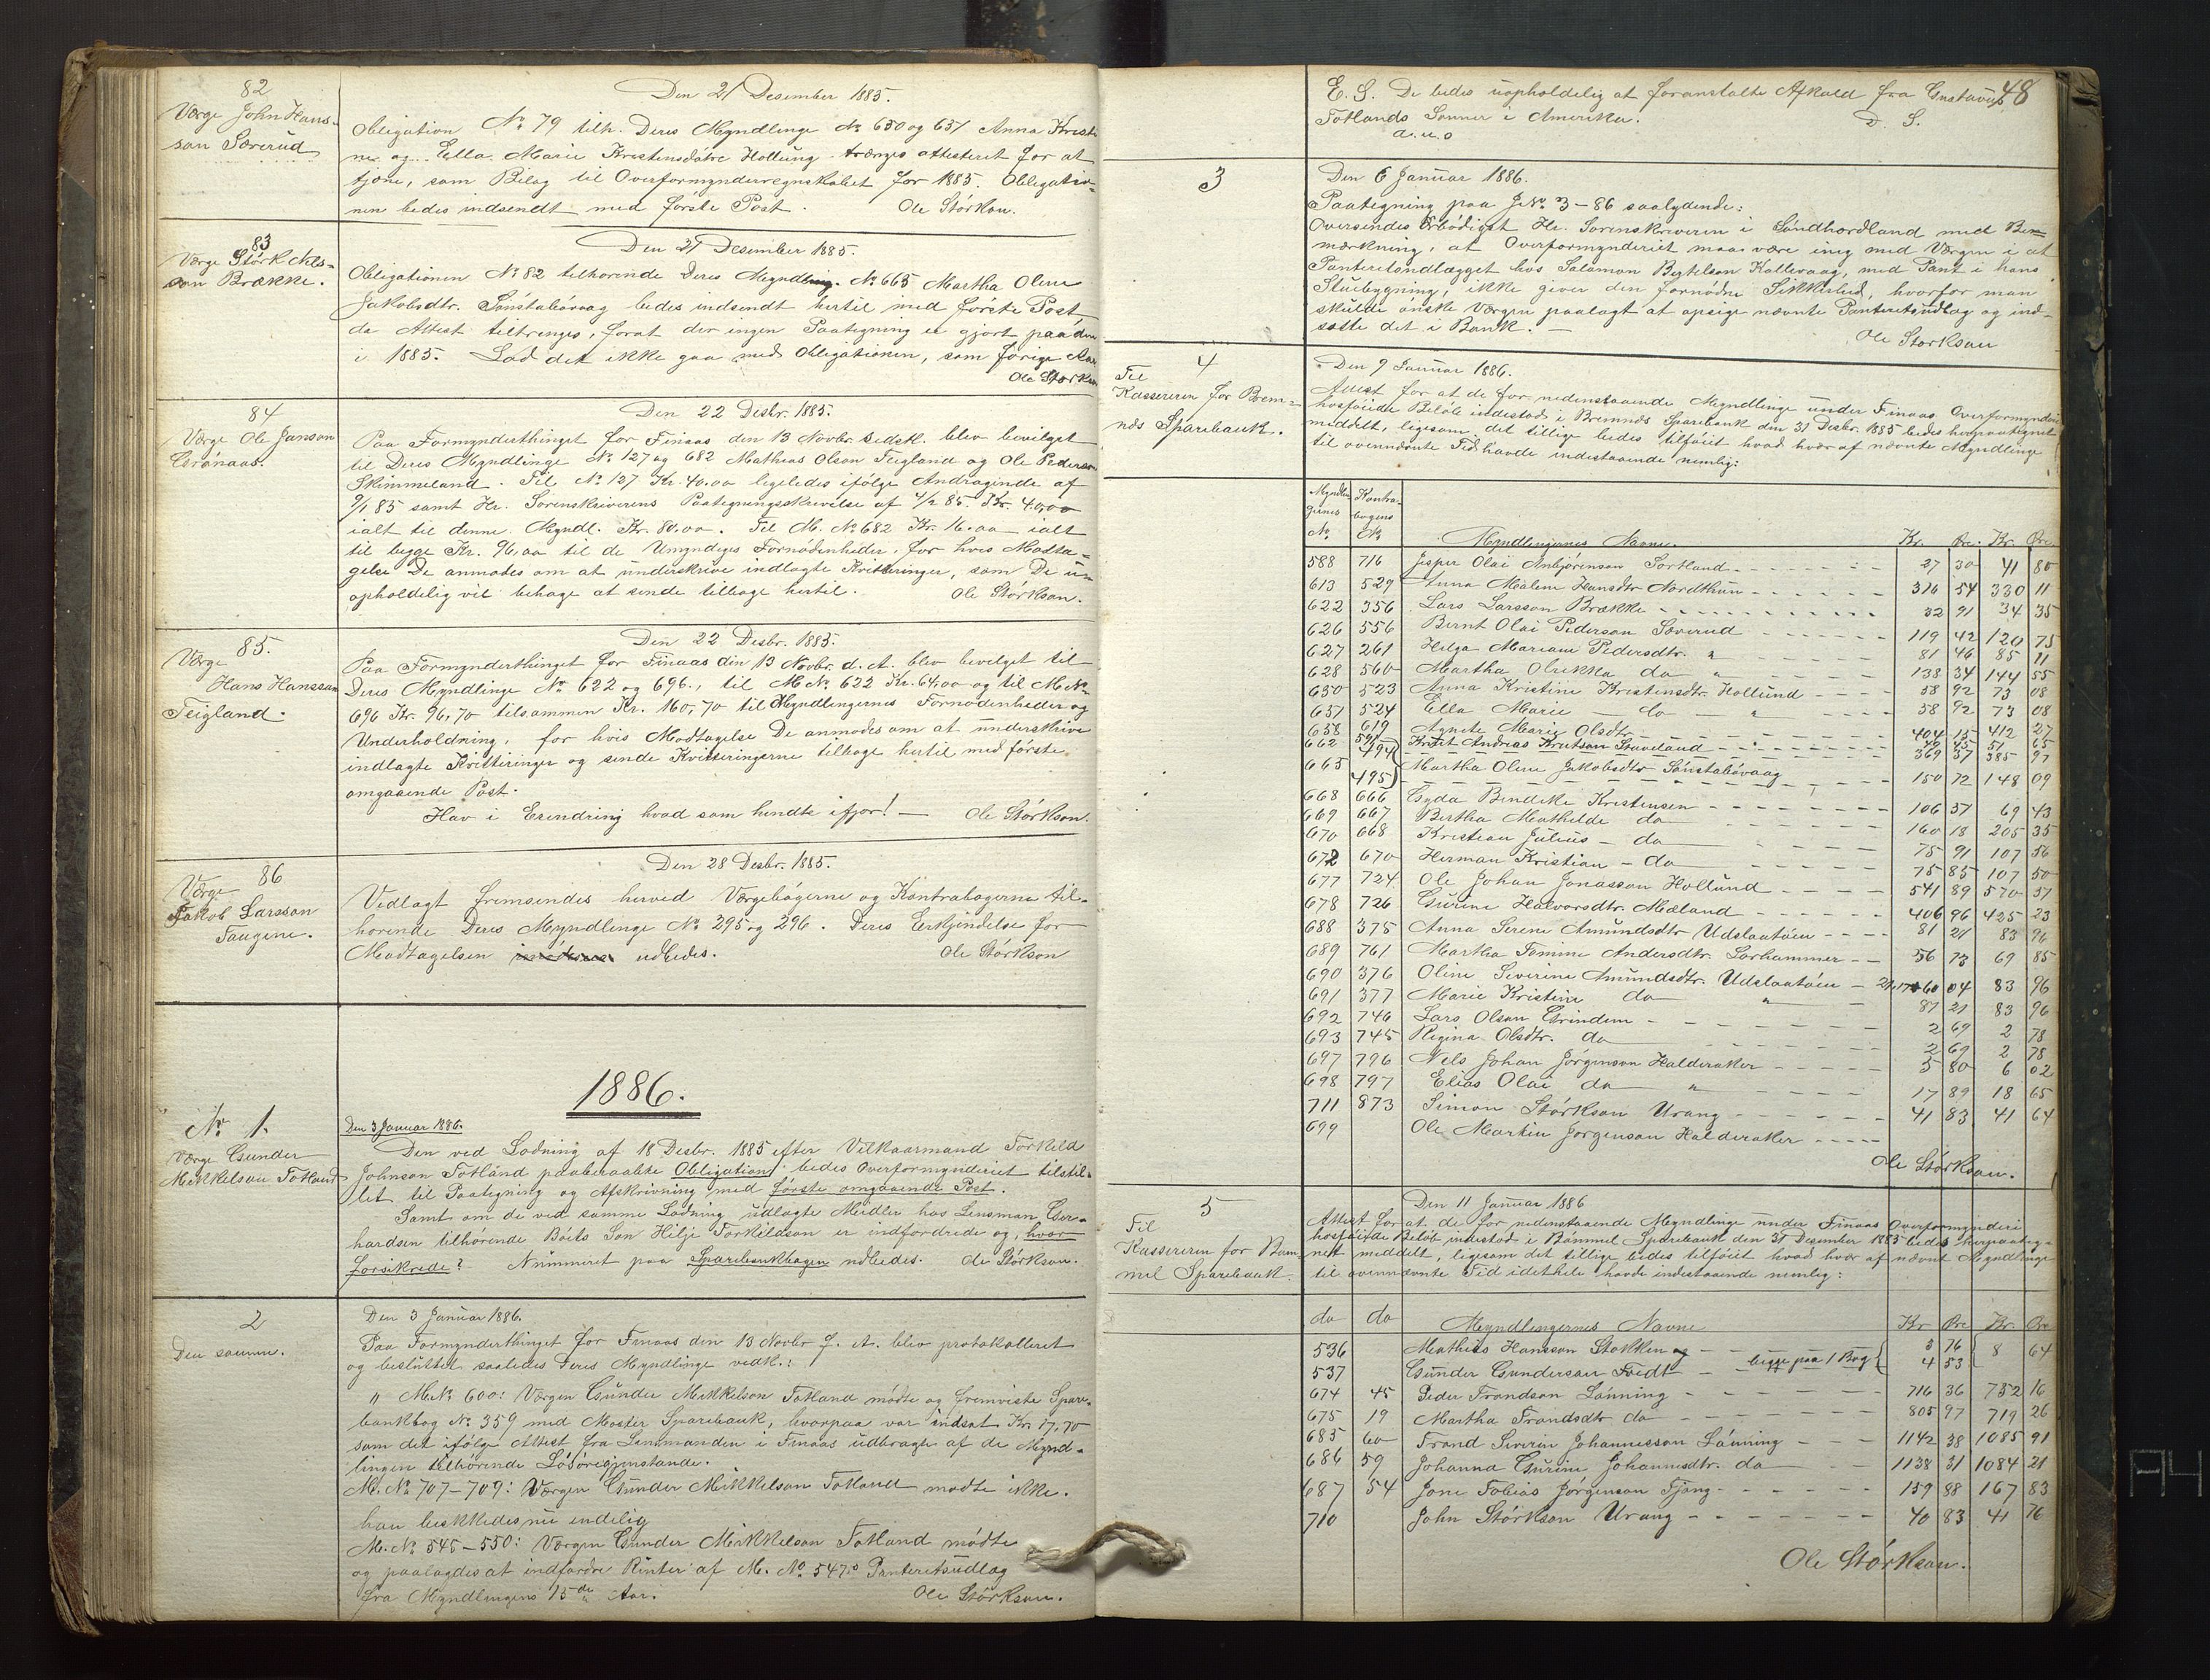 82
Værge John Hans-
son Særerud
Den 21 Desember 1885.
Obligation No 79 tilh. Deres Myndlinge No 650 og 651 Anna Kristi
ne og Ella Marie Kristensdøtre Hollung trænges attesteret for at
tjene, som Bilag til Overformynderregnskabet for 1885. Obligatio-
nen bedes indsendt med første Post.
Ole Størkson.
83
Værge Størk Nils-
son Brække.
Den 21 Desember 1885.
Obligationen No 82 tilhørende Deres Myndling No 665 Martha Oline
Jakobsdtr. Sønstabøvaag bedes indsendt hertil med første Post
da Attest tiltrenges, forat der ingen Paategning er gjort paa den
i 1885. Lad det ikke gaa med Obligationen, som forige Aar
Ole Størkson
84
Værge Ole Janson
Grønaas.
Den 22 Desbr. 1885.
Paa Formynderthinget for Finaas den 13 Novbr. sidstl. blev bevilget
til Deres Myndlinge No 127 og 682 Mathias Olson Teigland og Ole Pederson
Skimmeland. Til No 127 Kr. 40.00 ligeledes ifølge Andragende af
9/1 85 samt Hr. Sorenskriverens Paategningsskrivelse af 4/2 85. Kr. 40,00
ialt til denne Myndl. Kr. 80.00. Til M. No 682 Kr. 16.00 ialt
til begge Kr. 96,00 til de Umyndiges Fornødenheder, for hvis Modta-
gelse De anmodes om at underskrive indlagte Kvitteringer, som De u-
opholdelig vil behage at sende tilbage hertil.
Ole Størkson.
85.
Værge
Hans Hansson
Teigland.
Den 22 Desbr. 1885.
Paa Formynderthinget for Finaas den 13 Novbr. d. A. blev bevilget til
Deres Myndlinge No 622 og 696., til M No 622 Kr. 64.00 og til M No
696 Kr. 96,70 tilsammen Kr. 160,70 til Myndlingernes Fornødenheder og
Underholdning, for hvis Modtagelse De anmodes om at underskrive
indlagte Kvitteringer og sende Kvitteringerne tilbage hertil med første
omgaaende Post.
Hav i Erindring hvad som hendte ifjor! —
Ole Størkson.
86
Værge
Jakob Larsson
Taugene.
Den 28 Desbr. 1885.
Vedlagt fremsendes herved Værgebøgerne og Kontrabøgerne til-
hørende Deres Myndlinge No 295 og 296. Deres Erkjendelse for
Modtagelsen udbedes.
Ole Størkson
1886.
No 1.
Værge Gunder
Mikkelson Totland
Den 3 Januar 1886.
Den ved Lodning af 18 Desbr. 1885 efter Vilkaarmand Torkeld
Johnson Totland paaberaabte Obligation bedes Overformynderiet tilstil-
let til Paategning og Afskrivning med første omgaaende Post.
Samt om de ved samme Lodning udlagte Midler hos Lensman Ger-
hardsen tilhørende Boets Søn Hilje Torkeldson er indfordrede og, hvor
forsikrede? Nummeret paa Sparebankbogen udbedes.
Ole Størkson.
2
Den samme.
Den 3 Januar 1886.
Paa Formynderthinget for Finaas den 13 Novbr f. A. blev protokolleret
og besluttet saaledes Deres Myndlinge vedk.:
" M No 600: Værgen Gunder Mikkelson Totland mødte og fremviste Spare-
bankbog No 359 med Moster Sparebank, hvorpaa var indsat Kr. 17,70
som det ifølge Attest fra Lensmanden i Finaas udbragte af de Mynd-
lingen tilhørende Løsøregjenstande.
M. No 707-709: Værgen Gunder Mikkelson Totland mødte ikke.
han beskikkedes nu endelig
M. No 545-550: Værgen Gunder Mikkelson Totland mødte
og paalagdes at indfordre Renter af M. No 547s Panteretsudlæg
fra Myndlingens 15de Aar.
Ole Størkson.
48
E. S. De bedes uopholdelig at foranstalte Afkald fra Gustavus
Totlands Sønner i Amerika.
D. S.
d. u. o
3
Den 6 Januar 1886.
Paategning paa J No 3-86 saalydende:
Oversendes Ærbødigst Hr. Sorenskriveren i Søndhordland med Be-
mærkning, at Overformynderiet maa være enig med Værgen i at
Panteretsudlægget hos Salamon Bertelson Kallevaag, med Pant i hans
Stuebygning, ikke giver den fornødne Sikkerhed, hvorfor man
skulde ønske Værgen paalagt at opsige nævnte Panteretsudlæg og ind-
sætte det i Bank. —
Ole Størkson
4
Til
Kassereren for Brem-
næs Sparebank.
Den 9 Januar 1886.
Attest for at de for nedenstaaende Myndlinge under Finaas Overformynderi
hosføiede Beløb indestod i Bremnæs Sparebank den 31 Desbr. 1885 bedes herpaategnet
meddelt, ligesom det tillige bedes tilføiet hvad hver af nævnte Myndlinge
til ovennævnte Tid havde indestaaende nemlig:
Myndlin-
gernes
No
Kontra-
bogens
No
Myndlingernes Navne. Kr. Øre. Kr. Øre.
588 716 Jesper Olai Anbjørnson Sortland 27 30 41 80
613 529 Anna Malene Hansdtr Nordthun 316 54 330 11
622 356 Lars Larsson Brække 32 91 34 35
626 556 Bernt Olai Pederson Særerud 119 42 120 75
627 261 Helga Mariane Pedersdtr. " 81 46 85 11
628 560 Martha Olrikka do " 138 34 144 55
650 523 Anna Kristine Kristensdtr. Hollund 58 92 73 08
651 524 Ella Marie do " 58 92 73 08
658 619 Agnete Marie Olsdtr. 404 15 412 27
662 591 Knut Andreas Knutson Staveland 49 45 51 65
665 494 Martha Oline Jakobsdtr Sønstabøvaag 369 37 385 97
495 150 72 148 09
668 666 Gyda Bendikke Kristensen 106 37 69 43
669 667 Bertha Mathilde do 160 18 205 35
670 668 Kristian Julius - do 75 91 107 56
672 670 Herman Kristian - do 75 85 107 50
677 724 Ole Johan Jonasson Hollund 541 89 570 37
678 726 Gurine Halvorsdtr. Mæland 406 96 425 23
688 375 Anna Serine Amundsdtr Udslaatøen 81 21 83 96
689 761 Martha Tomine Andersdtr. Lorhammer 56 73 69 85
690 376 Oline Severine Amundsdtr. Udslaatøen 60 04 83 96
691 377 Marie Kristine do " 81 21 83 96
692 746 Lars Olson Grindem 2 69 2 78
693 745 Regina Olsdtr. do 2 69 2 78
697 796 Nels Johan Jørgenson Halderaker 5 80 6 02
698 797 Elias Olai do " 17 89 18 65
711 873 Simon Størkson Urang 41 83 41 64
699 Ole Martin Jørgenson Halderaker
Ole Størkson.
5
Til
Kassereren for Bøm-
mel Sparebank.
Den 11 Januar 1886
Attest for at de for nedenstaaende Myndlinge under Finaas Overformynderi
hosføiede Beløb indestod i Bømmel Sparebank den 31 Desember 1885 bedes herpaateg-
net meddelt, ligesom det tillige bedes tilføiet hvad hver af nævnt Myndlinge
til ovennævnte Tid idethele havde indestaaende nemlig:
do do Myndlingernes Navne Kr Øre Kr. Øre
536 Mathias Hansson Stokken og 3 76 8 64
537 Gunder Gunderson Tvedt begge paa 1 Bog 4 53
674 45 Peder Trondson Lønning 716 36 752 16
675 19 Martha Trondsdtr do 805 97 719 26
685 60 Trond Severin Johannesson Lønning 1142 38 1085 91
686 59 Johanna Gurine Johannesdtr. do 1138 31 1084 21
687 54 Jone Tobias Jørgenson Fjøng 159 88 167 83
710 John Størkson Urang 40 83 41 76
Ole Størkson.